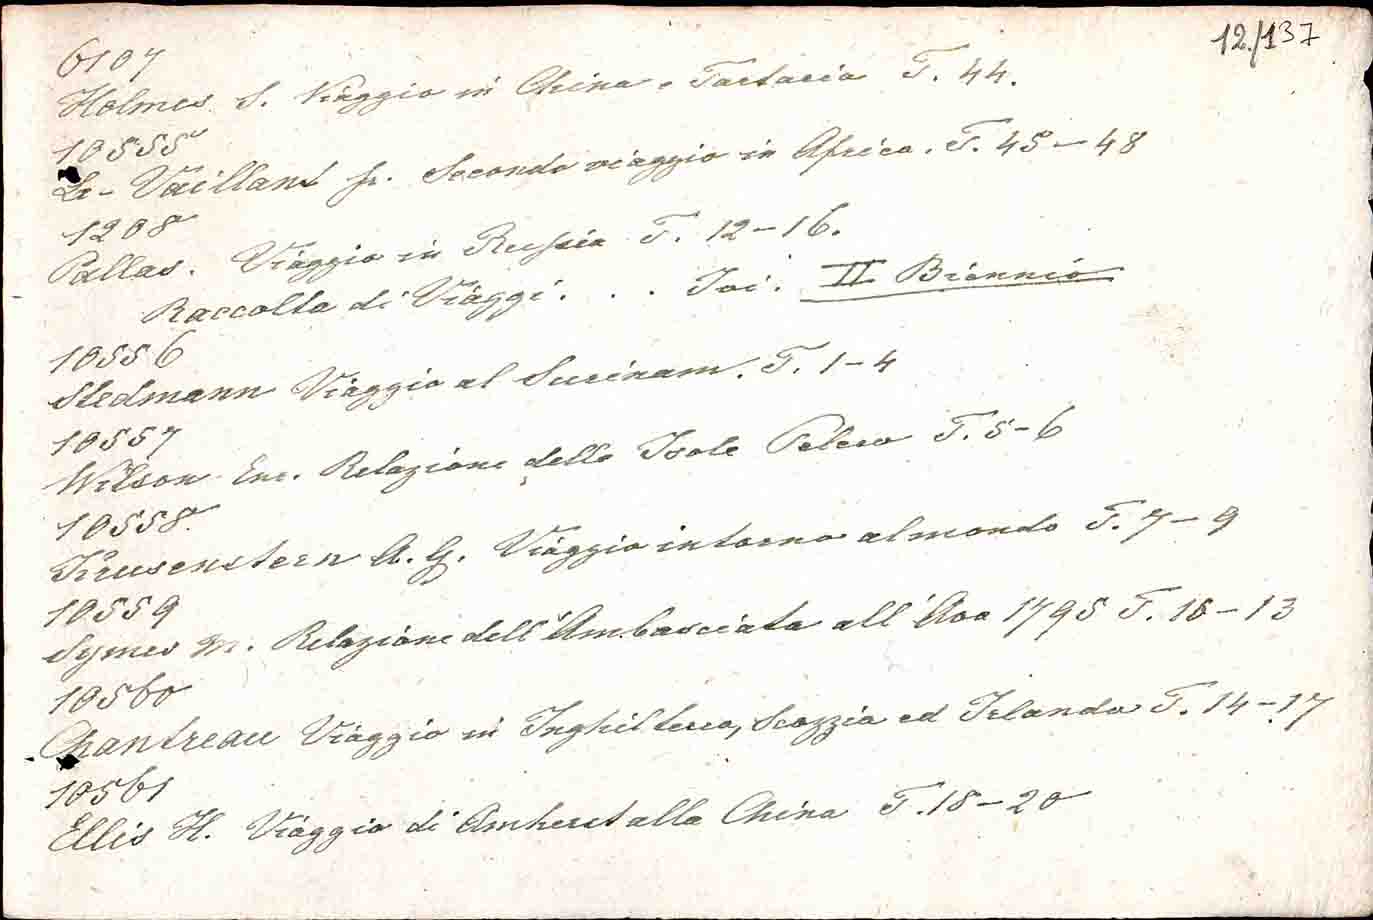 12./137
6107
Holmes S. Viaggio in China e Tartaria T. 44.
10555
Le-Vaillant fr. Secondo viaggio in Africa. T. 45-48
1208
Pallas. Viaggio in Russia T. 12-16.
Raccolta di Viaggi. . . Ivi. II Biennio
10556
Stedmann Viaggio al Surinam. T. 1-4
10557
Wilson Enr. Relazione delle Isole Pelew T. 5-6
10558.
Krusenstern A. G. Viaggio intorno al mondo T. 7-9
10559
Symes M. Relazione dell'Ambasciata all'Ava 1795 T. 10-13
10560
Chantreau Viaggio in Inghilterra, Scozzia ed Irlanda T. 14-17
10561
Ellis H. Viaggio di Amherst alla China T. 18-20